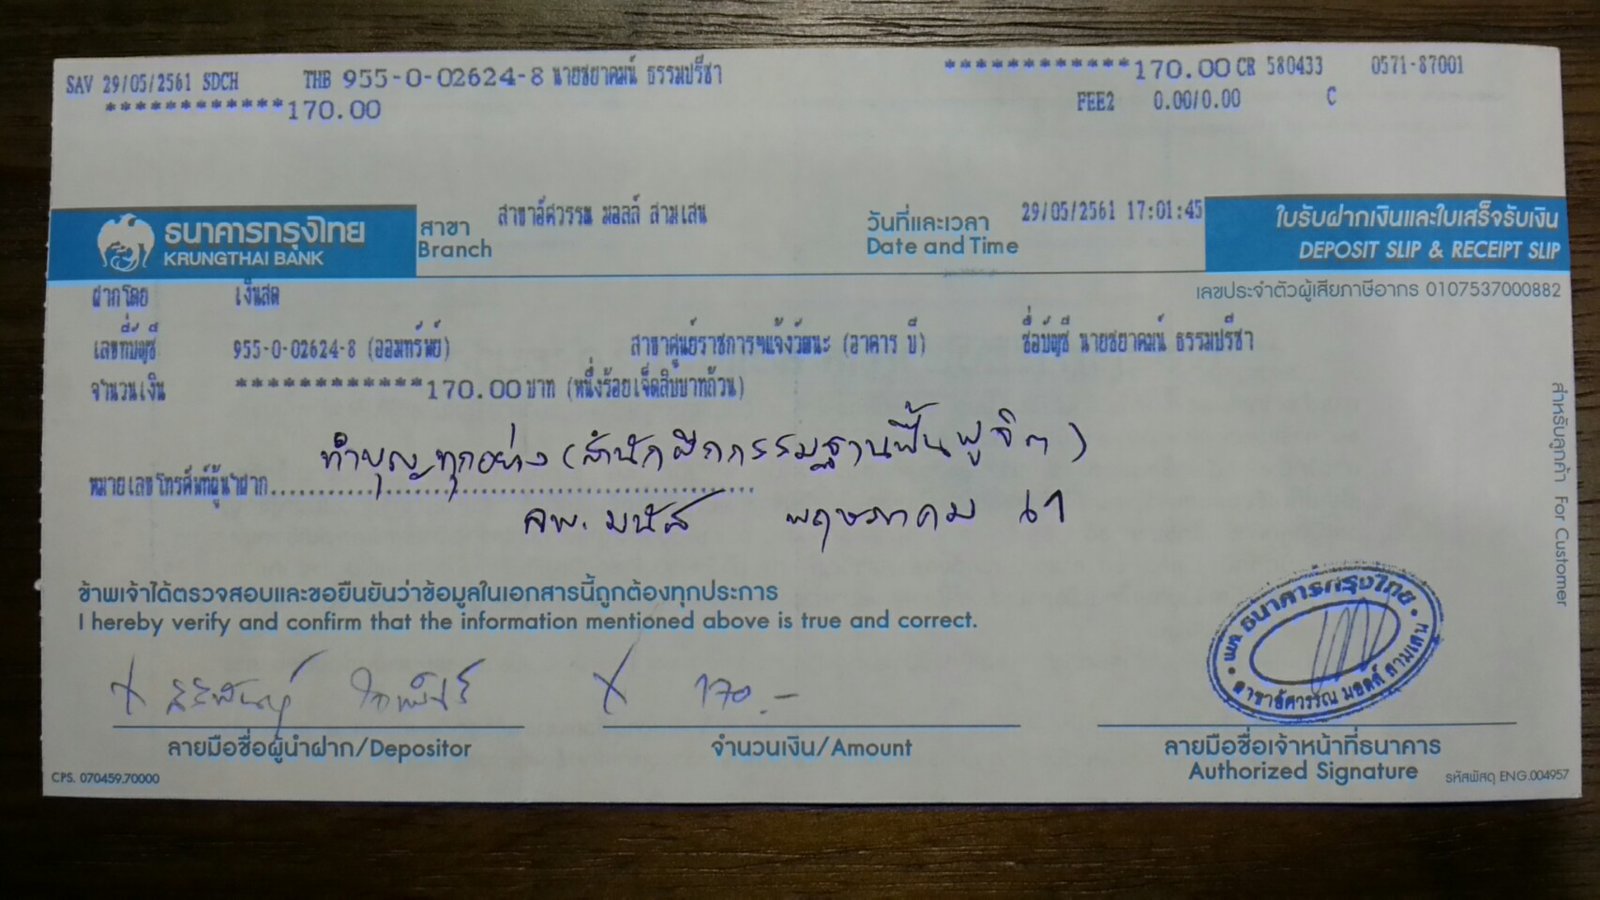 SAV 29/05/2561 SDCH THB 955-0-02624-8 นายชยาคมน์ ธรรมปรีชา ************170.00 CR 580433 0571-87001
************170.00 FEE2 0.00/0.00 C
ธนาคารกรุงไทย
KRUNGTHAI BANK
สาขา สาขาอัศวรรณ มอลล์ สามเสน
Branch
วันที่และเวลา 29/05/2561 17:01:45
Date and Time
ใบรับฝากเงินและใบเสร็จรับเงิน
DEPOSIT SLIP & RECEIPT SLIP
เลขประจำตัวผู้เสียภาษีอากร 0107537000882
ฝากโดย เงินสด
เลขที่บัญชี 955-0-02624-8 (ออมทรัพย์) สาขาศูนย์ราชการฯแจ้งวัฒนะ (อาคาร บี) ชื่อบัญชี นายชยาคมน์ ธรรมปรีชา
จำนวนเงิน ************170.00 บาท (หนึ่งร้อยเจ็ดสิบบาทถ้วน)
ทำบุญทุกอย่าง (สำนักฝึกกรรมฐานฟื้นฟูจิต)
หมายเลขโทรศัพท์ผู้นำฝาก
ลพ. มนัส พฤษภาคม ๖๑
สำหรับลูกค้า For Customer
ข้าพเจ้าได้ตรวจสอบและขอยืนยันว่าข้อมูลในเอกสารนี้ถูกต้องทุกประการ
I hereby verify and confirm that the information mentioned above is true and correct.
ธนาคารกรุงไทย
สาขาอัศวรรณ มอลล์ สามเสน
X X 170.-
ลายมือชื่อผู้นำฝาก/Depositor
จำนวนเงิน/Amount
ลายมือชื่อเจ้าหน้าที่ธนาคาร
Authorized Signature
CPS. 070459.70000
รหัสพัสดุ ENG.004957